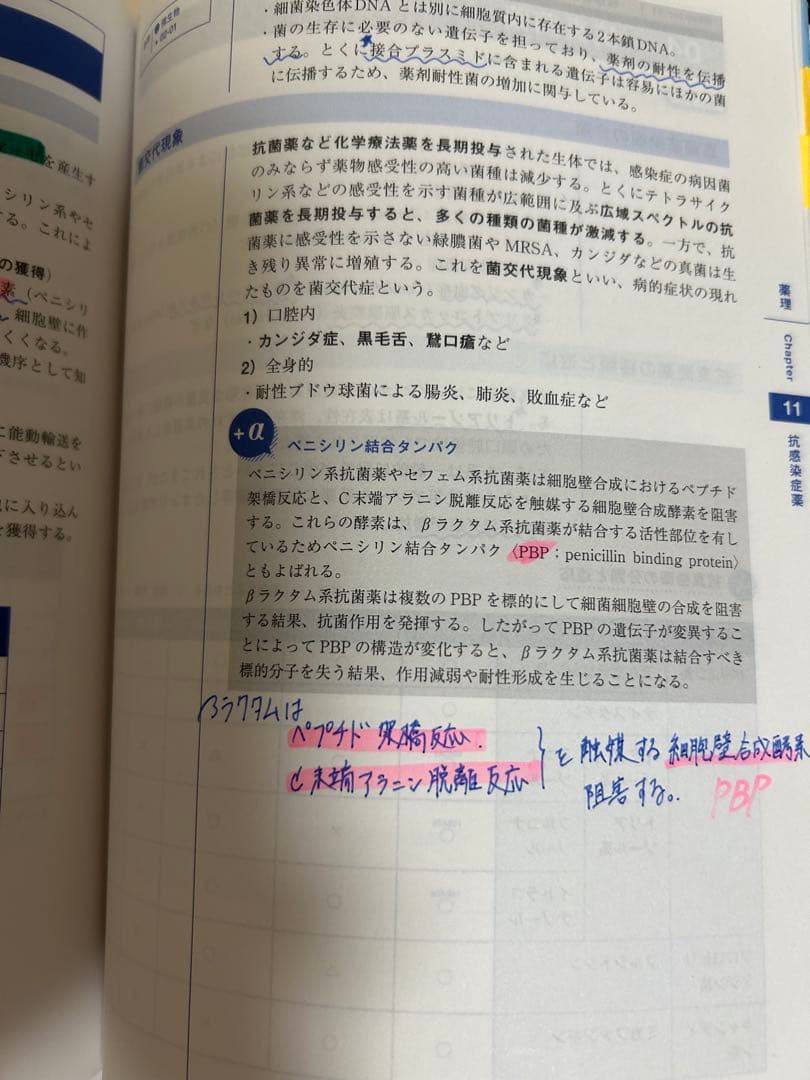 ・細菌染色体DNA とは別に細胞質内に存在する2本鎖DNA。
・菌の生存に必要のない遺伝子を担っており、薬剤の耐性を伝播
する。とくに接合プラスミドに含まれる遺伝子は容易にほかの菌
に伝播するため、薬剤耐性菌の増加に関与している。
菌交代現象
抗菌薬など化学療法薬を長期投与された生体では、感染症の病因菌
のみならず薬物感受性の高い菌種は減少する。とくにテトラサイク
リン系などの感受性を示す菌種が広範囲に及ぶ広域スペクトルの抗
菌薬を長期投与すると、多くの種類の菌種が激減する。一方で、抗
菌薬に感受性を示さない緑膿菌や MRSA、カンジダなどの真菌は生
き残り異常に増殖する。これを菌交代現象といい、病的症状の現れ
たものを菌交代症という。
1) 口腔内
・カンジダ症、黒毛舌、鵞口瘡など
2) 全身的
・耐性ブドウ球菌による腸炎、肺炎、敗血症など
+α
ペニシリン結合タンパク
ペニシリン系抗菌薬やセフェム系抗菌薬は細胞壁合成におけるペプチド
架橋反応と、C末端アラニン脱離反応を触媒する細胞壁合成酵素を阻害
する。これらの酵素は、βラクタム系抗菌薬が結合する活性部位を有し
ているためペニシリン結合タンパク〈PBP：penicillin binding protein〉
ともよばれる。
βラクタム系抗菌薬は複数の PBP を標的にして細菌細胞壁の合成を阻害
する結果、抗菌作用を発揮する。したがって PBP の遺伝子が変異するこ
とによって PBP の構造が変化すると、βラクタム系抗菌薬は結合すべき
標的分子を失う結果、作用減弱や耐性形成を生じることになる。
βラクタムは
ペプチド架橋反応.
C末端アラニン脱離反応
を触媒する細胞壁合成酵素
阻害する。
PBP
薬理
Chapter
11
抗感染症薬
を産生す
シリン系やセ
する。これによ
の獲得）
素（ペニシリ
細胞壁に作
くくなる。
機序として知
に能動輸送を
下させるとい
に入り込ん
を獲得する。